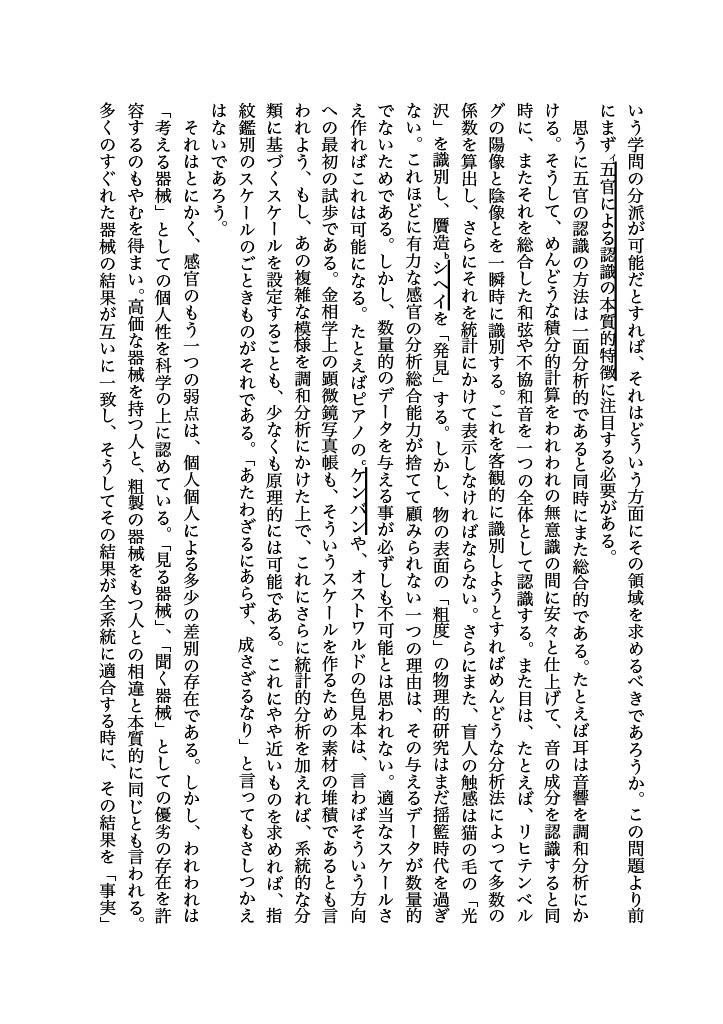 いう学問の分派が可能だとすれば、それはどういう方面にその領域を求めるべきであろうか。この問題より前
にまずィ五官による認識の本質的特徴に注目する必要がある。
思うに五官の認識の方法は一面分析的であると同時にまた総合的である。たとえば耳は音響を調和分析にか
ける。そうして、めんどうな積分的計算をわれわれの無意識の間に安々と仕上げて、音の成分を認識すると同
時に、またそれを総合した和弦や不協和音を一つの全体として認識する。また目は、たとえば、リヒテンベル
グの陽像と陰像とを一瞬時に識別する。これを客観的に識別しようとすればめんどうな分析法によって多数の
係数を算出し、さらにそれを統計にかけて表示しなければならない。さらにまた、盲人の触感は猫の毛の「光
沢」を識別し、贋造bシヘイを「発見」する。しかし、物の表面の「粗度」の物理的研究はまだ揺籃時代を過ぎ
ない。これほどに有力な感官の分析総合能力が捨てて顧みられない一つの理由は、その与えるデータが数量的
でないためである。しかし、数量的のデータを与える事が必ずしも不可能とは思われない。適当なスケールさ
え作ればこれは可能になる。たとえばピアノのcケンバンや、オストワルドの色見本は、言わばそういう方向
への最初の試歩である。金相学上の顕微鏡写真帳も、そういうスケールを作るための素材の堆積であるとも言
われよう、もし、あの複雑な模様を調和分析にかけた上で、これにさらに統計的分析を加えれば、系統的な分
類に基づくスケールを設定することも、少なくも原理的には可能である。これにやや近いものを求めれば、指
紋鑑別のスケールのごときものがそれである。「あたわざるにあらず、成さざるなり」と言ってもさしつかえ
はないであろう。
それはとにかく、感官のもう一つの弱点は、個人個人による多少の差別の存在である。しかし、われわれは
「考える器械」としての個人性を科学の上に認めている。「見る器械」、「聞く器械」としての優劣の存在を許
容するのもやむを得まい。高価な器械を持つ人と、粗製の器械をもつ人との相違と本質的に同じとも言われる。
多くのすぐれた器械の結果が互いに一致し、そうしてその結果が全系統に適合する時に、その結果を「事実」